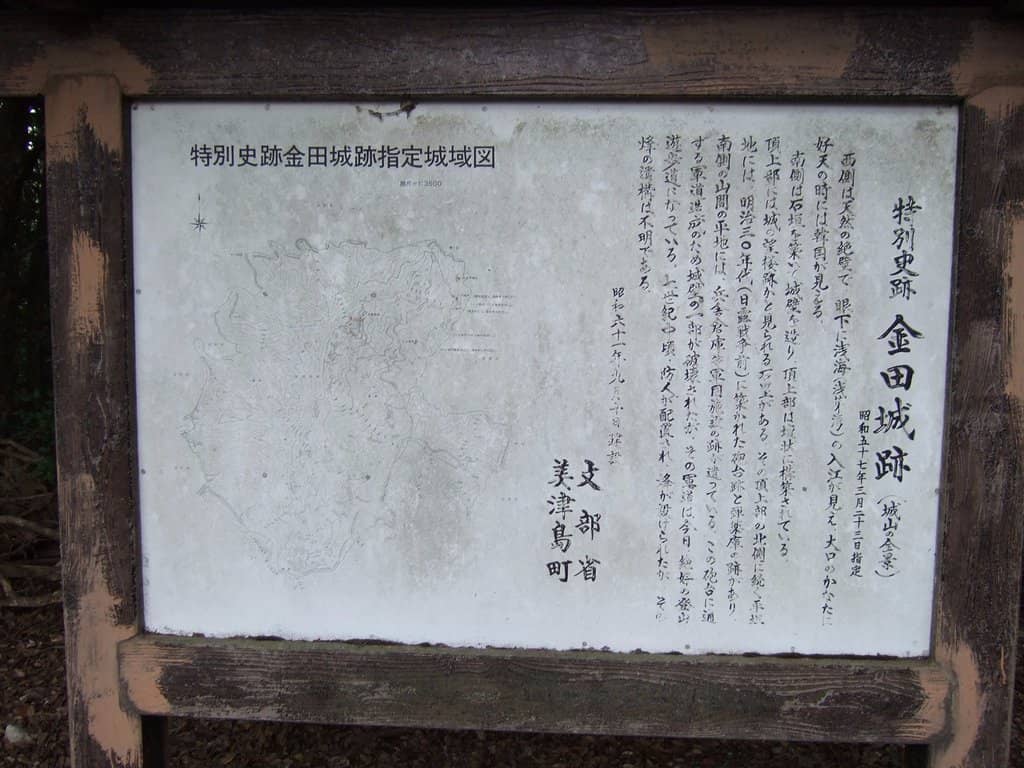 特別史跡 金田城跡（城山の全景）
昭和五十七年三月二十三日指定
西側は天然の絶壁で、眼下に浅海（浅茅湾）の入江が見え、大口のかなたに
好天の時には韓国が見える。
南側は石垣を築いて城壁を造り、頂上部は
頂上部には城の望楼跡かと見られる石塁がある。その頂上部の北側に続く平坦
地には、明治三〇年代（日露戦争前）に築かれた砲台跡と弾薬庫の跡があり、
南側の山間の平地には、兵舎、倉庫等軍用施設の跡が遺っている。この砲台に通
する軍道建設のため城壁の一部が破壊されたが、その軍道は今日、絶好の登山
遊歩道になっている。七世紀中頃、防人が配置され、烽が設けられたが、その
烽の遺構は不明である。
昭和六十一年九月三十日 建設
文部省
美津島町
特別史跡金田城跡指定城域図